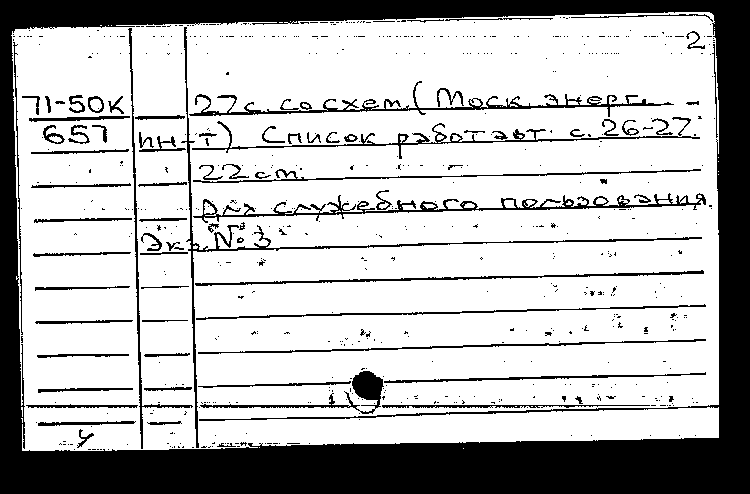 2
71-50К 27 с. со схем. (Моск. энерг.
657 ин-т). Список работ авт. с. 26-27.
22 см.
Для служебного пользования.
Экз. № 3
у